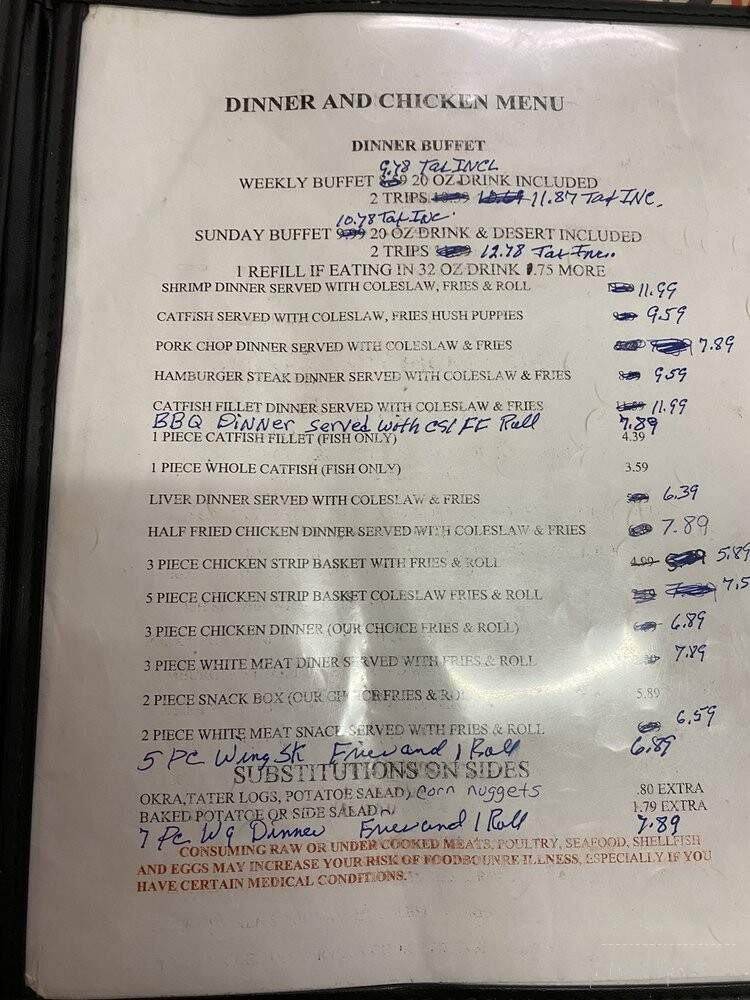 DINNER AND CHICKEN MENU
DINNER BUFFET
9.78 Tax INCL
WEEKLY BUFFET 20 OZ DRINK INCLUDED
2 TRIPS 11.87 Tax INC.
10.78 Tax Inc.
SUNDAY BUFFET 9.99 20 OZ DRINK & DESERT INCLUDED
2 TRIPS 12.78 Tax Inc.
1 REFILL IF EATING IN 32 OZ DRINK .75 MORE
SHRIMP DINNER SERVED WITH COLESLAW, FRIES & ROLL 11.99
CATFISH SERVED WITH COLESLAW, FRIES HUSH PUPPIES 9.59
PORK CHOP DINNER SERVED WITH COLESLAW & FRIES 7.89
HAMBURGER STEAK DINNER SERVED WITH COLESLAW & FRIES 9.59
CATFISH FILLET DINNER SERVED WITH COLESLAW & FRIES 11.99
BBQ Dinner served with CSl FF Roll 7.89
1 PIECE CATFISH FILLET (FISH ONLY) 4.39
1 PIECE WHOLE CATFISH (FISH ONLY) 3.59
LIVER DINNER SERVED WITH COLESLAW & FRIES 6.39
HALF FRIED CHICKEN DINNER SERVED WITH COLESLAW & FRIES 7.89
3 PIECE CHICKEN STRIP BASKET WITH FRIES & ROLL 4.99 5.89
5 PIECE CHICKEN STRIP BASKET COLESLAW FRIES & ROLL 7.5
3 PIECE CHICKEN DINNER (OUR CHOICE FRIES & ROLL) 6.89
3 PIECE WHITE MEAT DINER SERVED WITH FRIES & ROLL 7.89
2 PIECE SNACK BOX (OUR CHOICE FRIES & ROLL 5.89
2 PIECE WHITE MEAT SNACK SERVED WITH FRIES & ROLL 6.59
5 PC Wing SK Fries and 1 Roll 6.89
SUBSTITUTIONS ON SIDES
OKRA,TATER LOGS, POTATOE SALAD) corn nuggets .80 EXTRA
BAKED POTATOE OR SIDE SALAD 1.79 EXTRA
7 Pc Wg Dinner Fries and 1 Roll 7.89
CONSUMING RAW OR UNDER COOKED MEATS, POULTRY, SEAFOOD, SHELLFISH
AND EGGS MAY INCREASE YOUR RISK OF FOODBOUNRE ILLNESS, ESPECIALLY IF YOU
HAVE CERTAIN MEDICAL CONDITIONS.